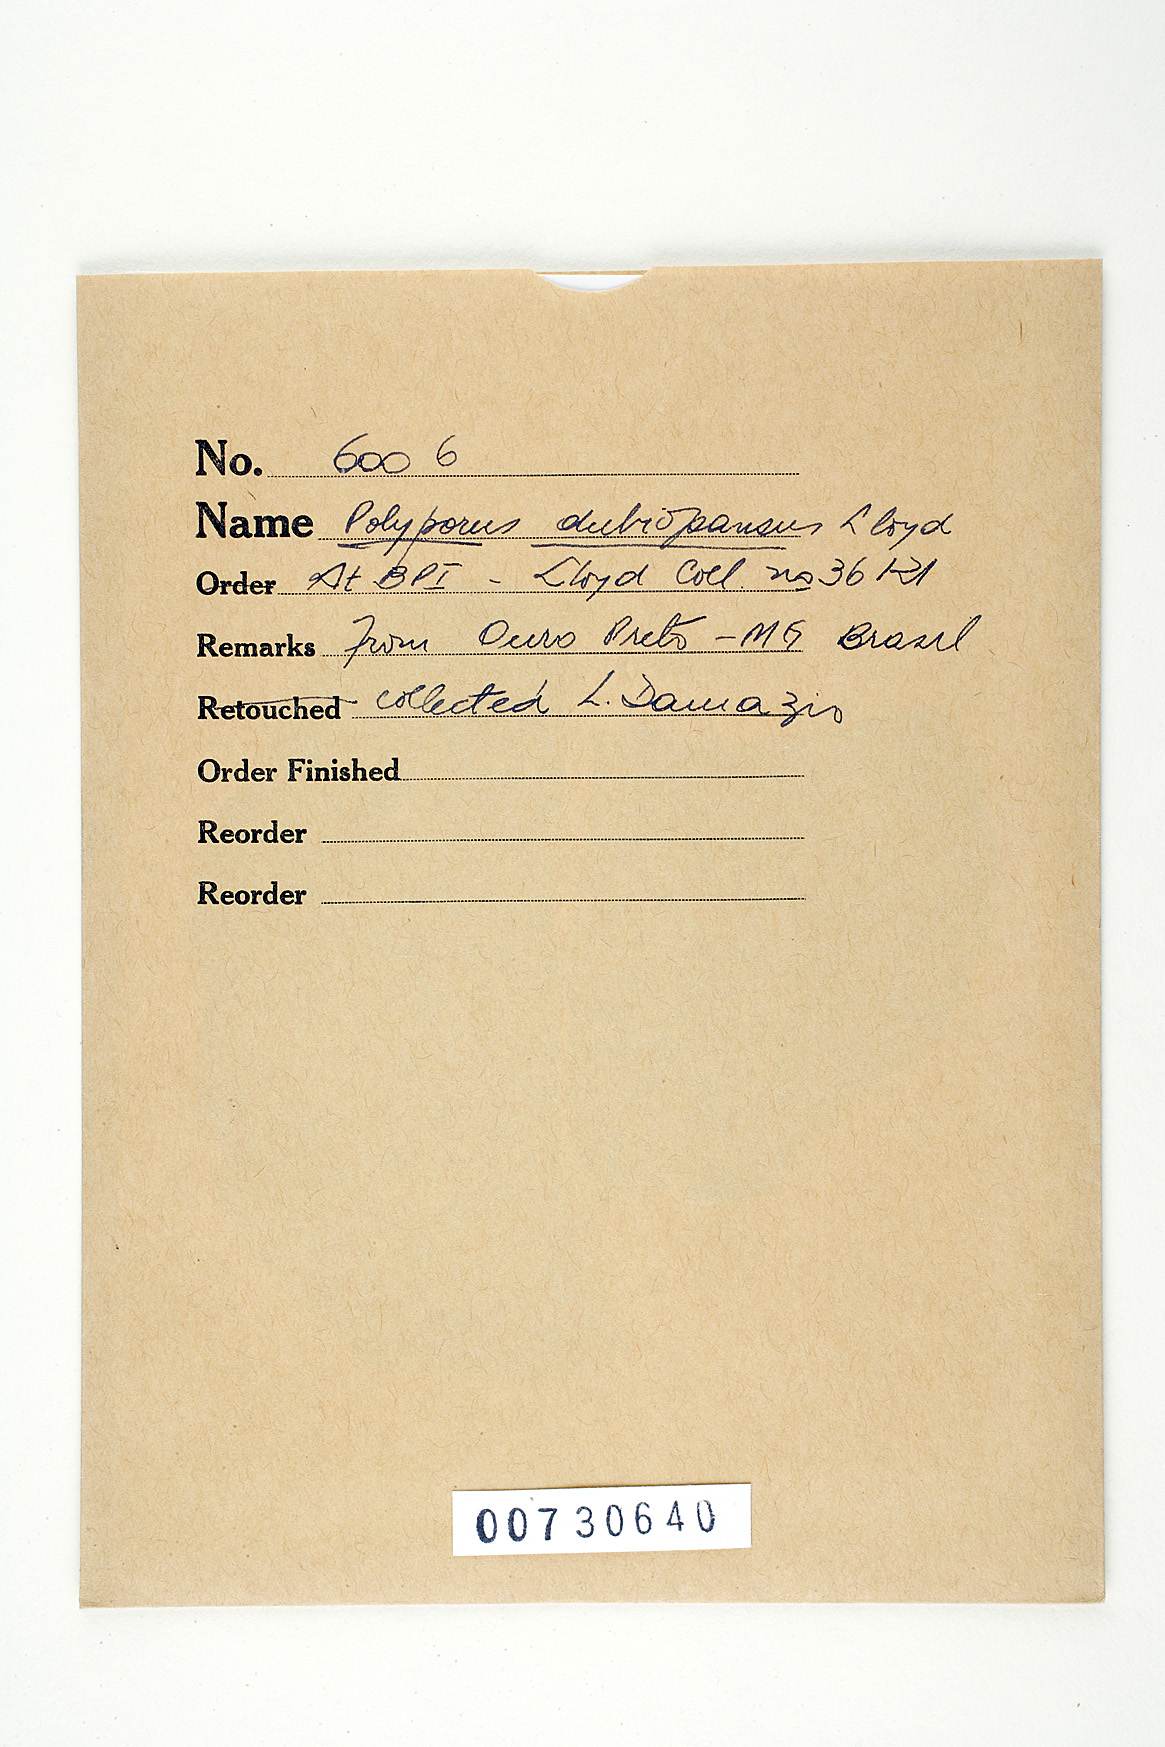 No. 600 6
Name Polyporus dubiopansus Lloyd
Order At BPI - Lloyd Coll. no 36
Remarks From Ouro Preto - MG Brasil
Retouched collected L. Damazio
Order Finished
Reorder
Reorder
00730640